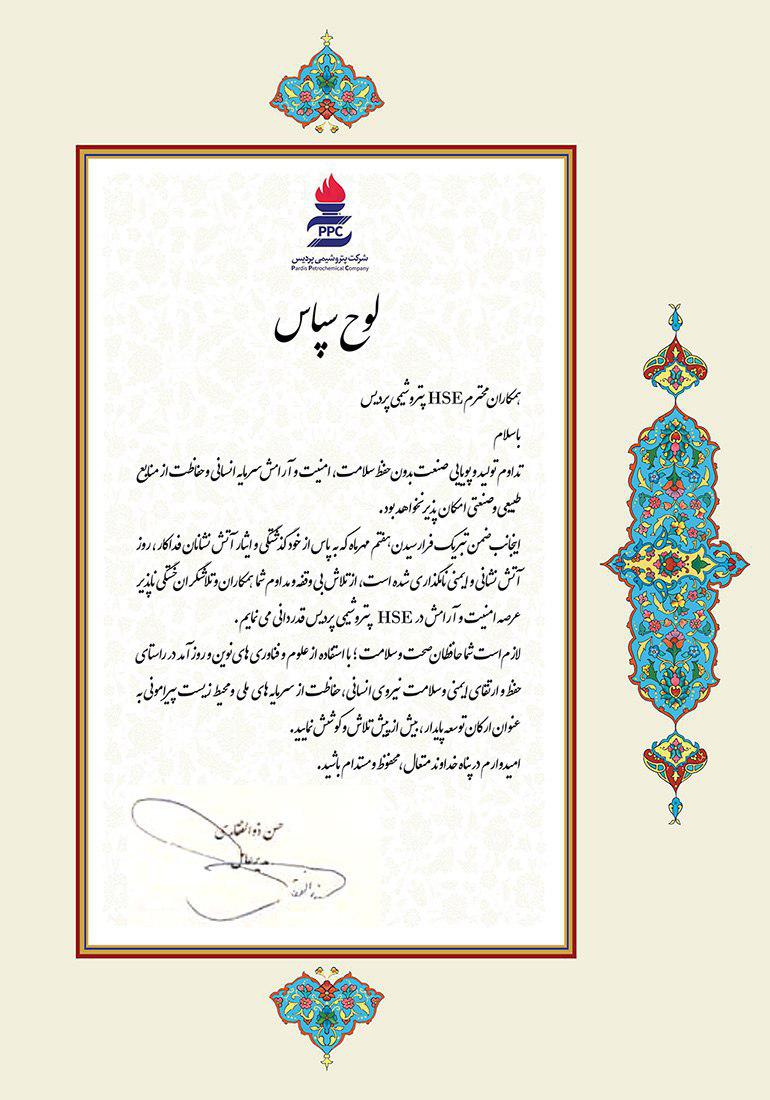 PPC
شرکت پتروشیمی پردیس
Pardis Petrochemical Company
لوح سپاس
همکاران محترم HSE پتروشیمی پردیس
باسلام
تداوم تولید و پویایی صنعت بدون حفظ سلامت، امنیت و آرامش سرمایه انسانی و حفاظت از منابع
طبیعی و صنعتی امکان پذیر نخواهد بود.
اینجانب ضمن تبریک فرا رسیدن هفتم مهرماه که به پاس از خود گذشتگی و ایثار آتش نشانان فداکار، روز
آتش نشانی و ایمنی نامگذاری شده است، از تلاش بی وقفه و مداوم شما همکاران و تلاشگران خستگی ناپذیر
عرصه امنیت و آرامش در HSE پتروشیمی پردیس قدردانی می نمایم.
لازم است شما حافظان صحت و سلامت؛ با استفاده از علوم و فناوری های نوین و روز آمد در راستای
حفظ و ارتقای ایمنی وسلامت نیروی انسانی، حفاظت از سرمایه های ملی و محیط زیست پیرامونی به
عنوان ارکان توسعه پایدار، بیش از پیش تلاش و کوشش نمایید.
امیدوارم در پناه خداوند متعال، محفوظ و مستدام باشید.
حسن ذوالفقاری
مدیرعامل